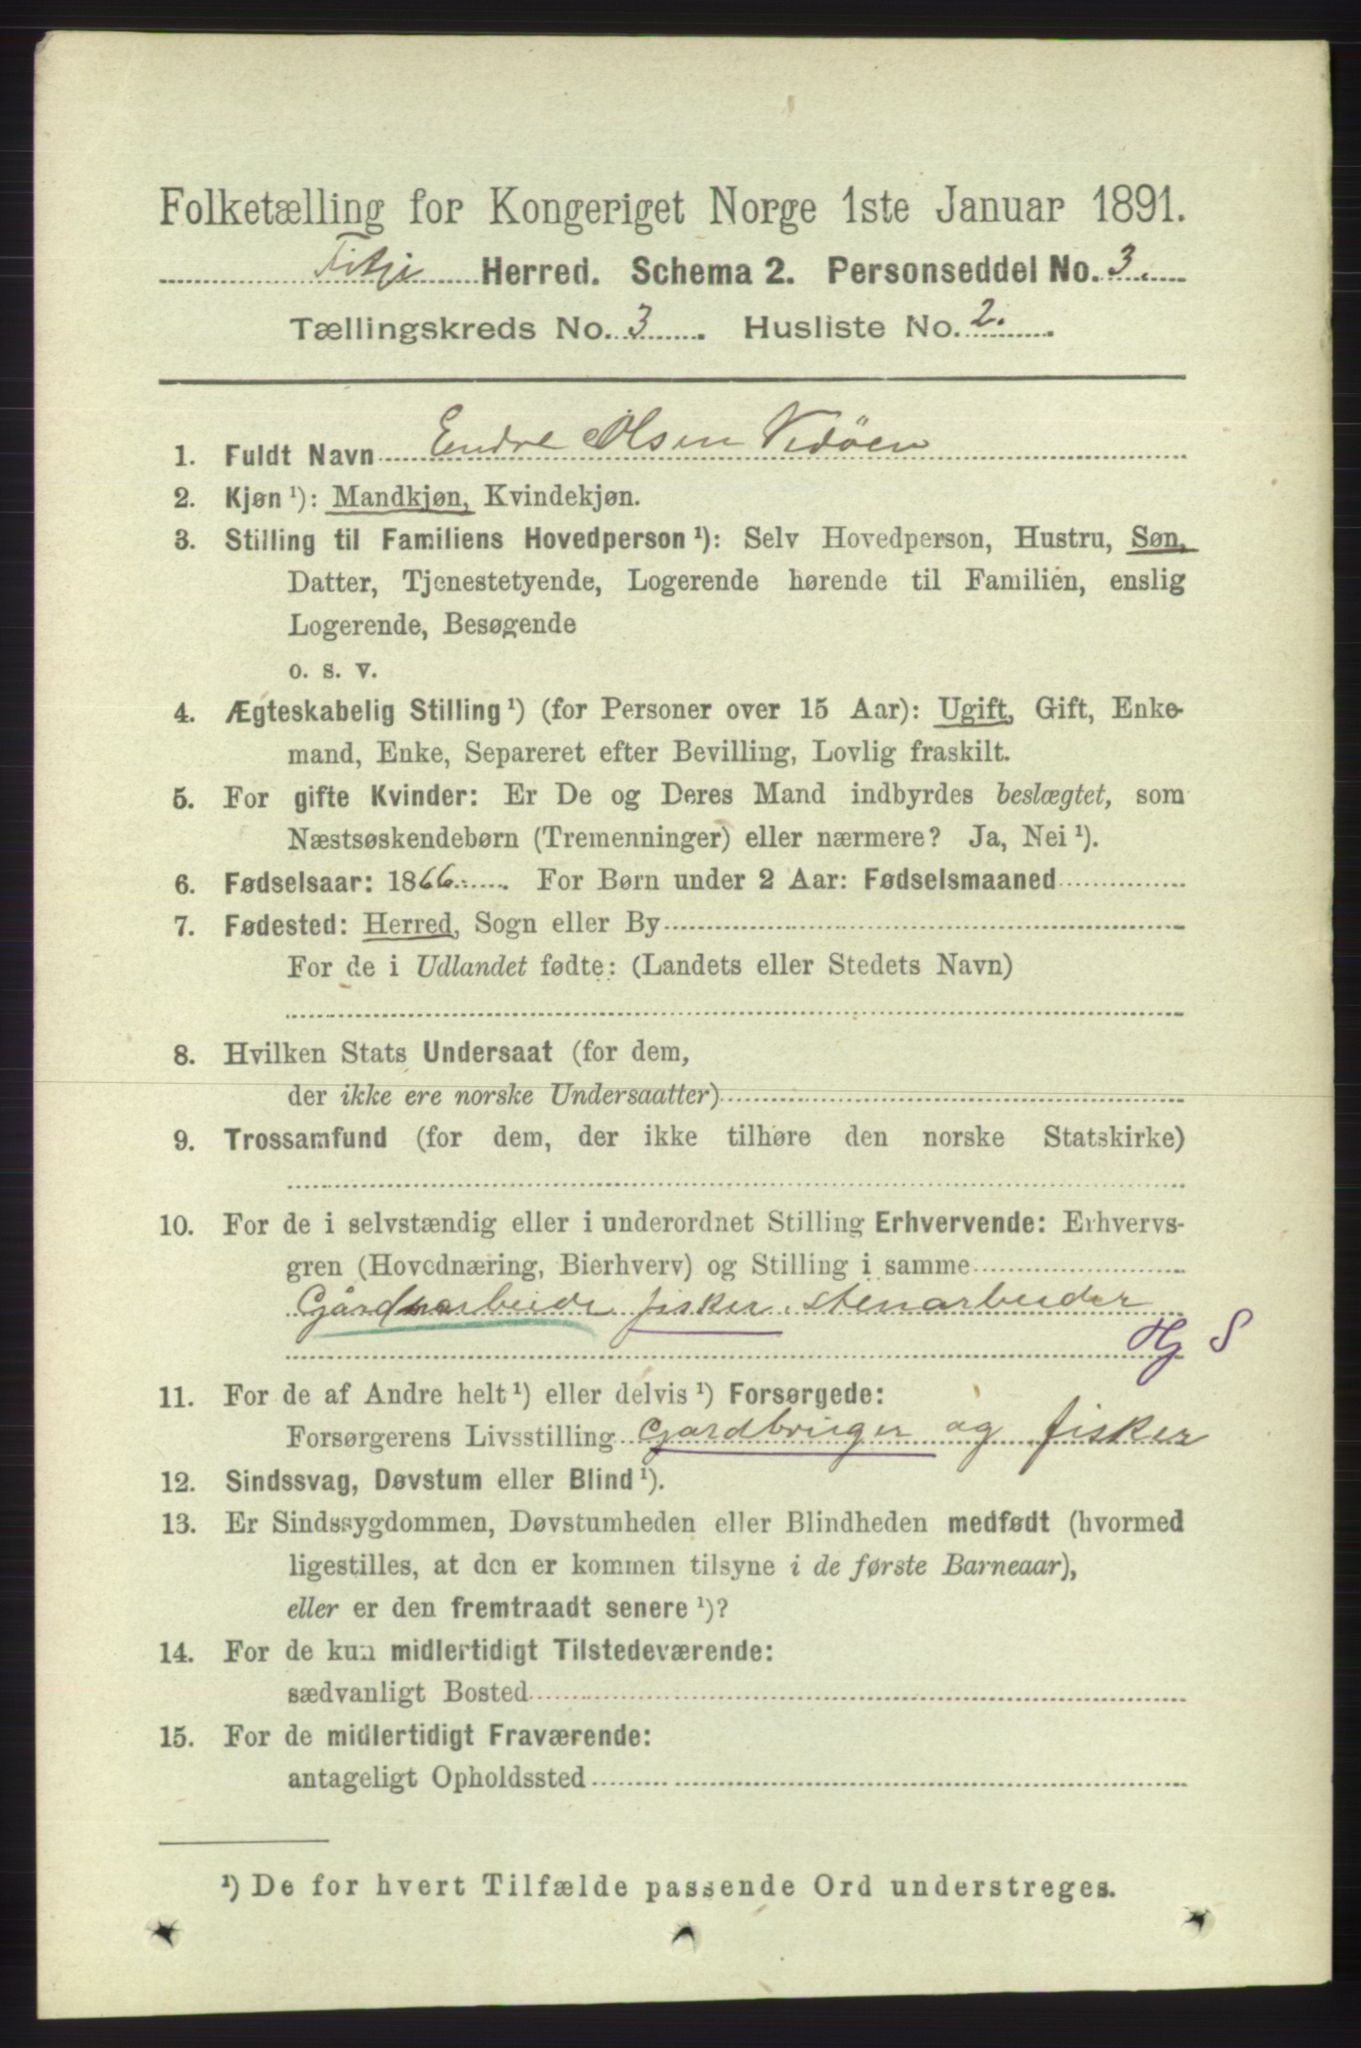 Folketælling for Kongeriget Norge 1ste Januar 1891.
Fitje Herred. Schema 2. Personseddel No. 3.
Tællingskreds No. 3. Husliste No. 2.
1. Fuldt Navn Endre Olsen Vedöen
2. Kjøn ¹): Mandkjøn, Kvindekjøn.
3. Stilling til Familiens Hovedperson ¹): Selv Hovedperson, Hustru, Søn,
Datter, Tjenestetyende, Logerende hørende til Familien, enslig
Logerende, Besøgende
o. s. v.
4. Ægteskabelig Stilling ¹) (for Personer over 15 Aar): Ugift, Gift, Enke-
mand, Enke, Separeret efter Bevilling, Lovlig fraskilt.
5. For gifte Kvinder: Er De og Deres Mand indbyrdes beslægtet, som
Næstsøskendebørn (Tremenninger) eller nærmere? Ja, Nei ¹).
6. Fødselsaar: 1866. For Børn under 2 Aar: Fødselsmaaned
7. Fødested: Herred, Sogn eller By
For de i Udlandet fødte: (Landets eller Stedets Navn)
8. Hvilken Stats Undersaat (for dem,
der ikke ere norske Undersaatter)
9. Trossamfund (for dem, der ikke tilhøre den norske Statskirke)
10. For de i selvstændig eller i underordnet Stilling Erhvervende: Erhvervs-
gren (Hovednæring, Bierhverv) og Stilling i samme
Gårdsarbeide fisker, stenarbeider
Hj S
11. For de af Andre helt ¹) eller delvis ¹) Forsørgede:
Forsørgerens Livsstilling Gardbruger og fisker
12. Sindssvag, Døvstum eller Blind ¹).
13. Er Sindssygdommen, Døvstumheden eller Blindheden medfødt (hvormed
ligestilles, at den er kommen tilsyne i de første Barneaar),
eller er den fremtraadt senere ¹)?
14. For de kun midlertidigt Tilstedeværende:
sædvanligt Bosted
15. For de midlertidigt Fraværende:
antageligt Opholdssted
¹) De for hvert Tilfælde passende Ord understreges.